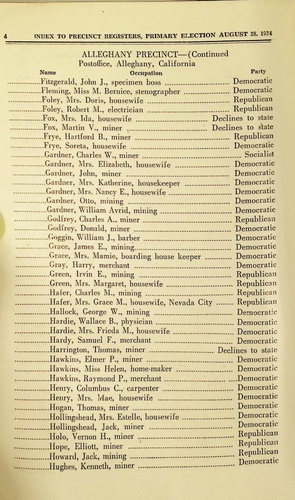 4 INDEX TO PRECINCT REGISTERS, PRIMARY ELECTION AUGUST 28, 1934
ALLEGHANY PRECINCT—(Continued
Postoffice, Alleghany, California
Name Occupation Party
Fitzgerald, John J., specimen boss Democratic
Fleming, Miss M. Bernice, stenographer Democratic
Foley, Mrs. Doris, housewife Republican
Foley, Robert M., electrician Republican
Fox, Mrs. Ida, housewife Declines to state
Fox, Martin V., miner Declines to state
Frye, Hartford B., miner Republican
Frye, Soreta, housewife Democratic
Gardner, Charles W., miner Socialist
Gardner, Mrs. Elizabeth, housewife Democratic
Gardner, John, miner Democratic
Gardner, Mrs. Katherine, housekeeper Democratic
Gardner, Mrs. Nancy E., housewife Democratic
Gardner, Otto, mining Democratic
Gardner, William Avrid, mining Democratic
Godfrey, Charles A., miner Republican
Godfrey, Donald, miner Democratic
Goggin, William J., barber Democratic
Grace, James E., mining Democratic
Grace, Mrs. Mamie, boarding house keeper Democratic
Gray, Harry, merchant Democratic
Green, Irvin E., mining Republican
Green, Mrs. Margaret, housewife Republican
Hafer, Charles M., mining Republican
Hafer, Mrs. Grace M., housewife, Nevada City Republican
Hallock, George W., mining Democratic
Hardie, Wallace B., physician Democratic
Hardie, Mrs. Frieda M., housewife Democratic
Hardy, Samuel F., merchant Democratic
Harrington, Thomas, miner Declines to state
Hawkins, Elmer P., miner Democratic
Hawkins, Miss Helen, home-maker Democratic
Hawkins, Raymond P., merchant Democratic
Henry, Columbus C., carpenter Democratic
Henry, Mrs. Mae, housewife Democratic
Hogan, Thomas, miner Democratic
Hollingshead, Mrs. Estelle, housewife Democratic
Hollingshead, Jack, miner Democratic
Holo, Vernon H., miner Republican
Hope, Elliott, miner Republican
Howard, Jack, mining Republican
Hughes, Kenneth, miner Democratic